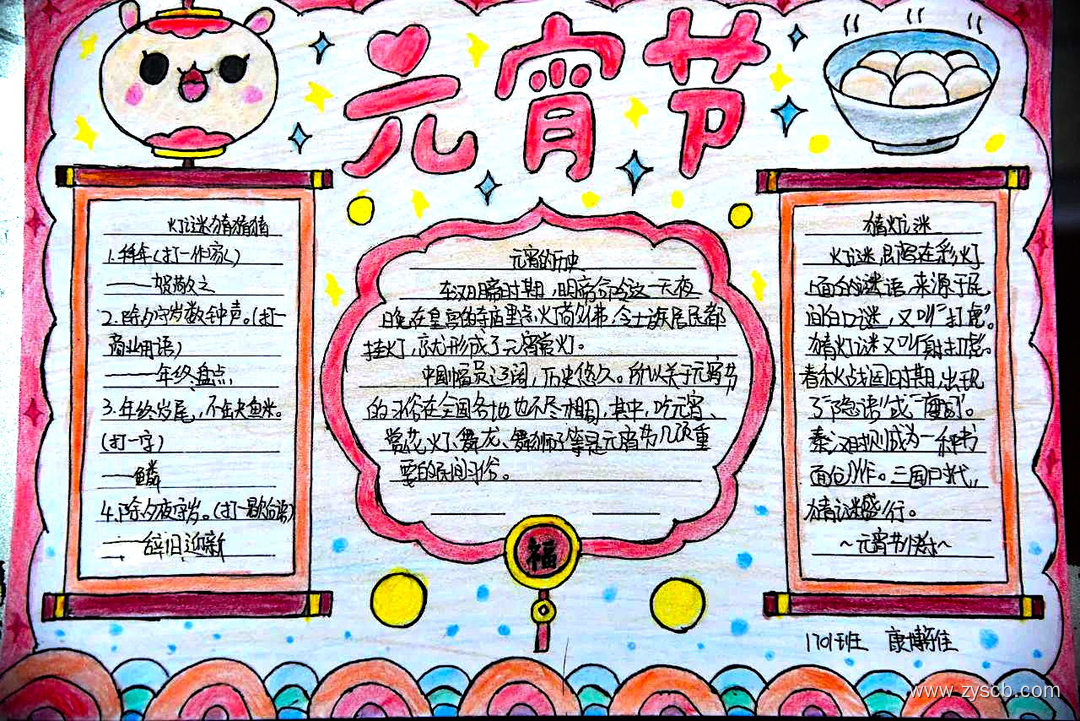 元宵节
灯谜猜猜猜
1.拜年(打一作家)
——贺敬之
2.除夕守岁数钟声。(打一
商业用语)
——年终盘点
3.年终岁尾,不缺大鱼米。
(打一字)
——鳞
4.除夕夜守岁。(打一歇后语)
——辞旧迎新
元宵的历史
东汉明帝时期,明帝命令这一天夜
晚在皇宫的寺庙里点灯尚弘佛,令士族居民都
挂灯,就形成了元宵赏灯。
中国幅员辽阔,历史悠久。所以关于元宵节
的习俗在全国各地也不尽相同,其中,吃元宵、
赏花灯、舞龙、舞狮子等是元宵节几项重
要的民间习俗。
福
猜灯谜
灯谜是写在彩灯
上面的谜语,来源于民
间的口谜,又叫"打虎"。
猜灯谜又叫"射打虎。
春秋战国时期,出现
了"隐语"或"廋词"。
秦汉规则成为一种书
面创作。三国时代,
猜谜盛行。
~元宵节快乐~
1701班 康博佳
www.zyscb.com